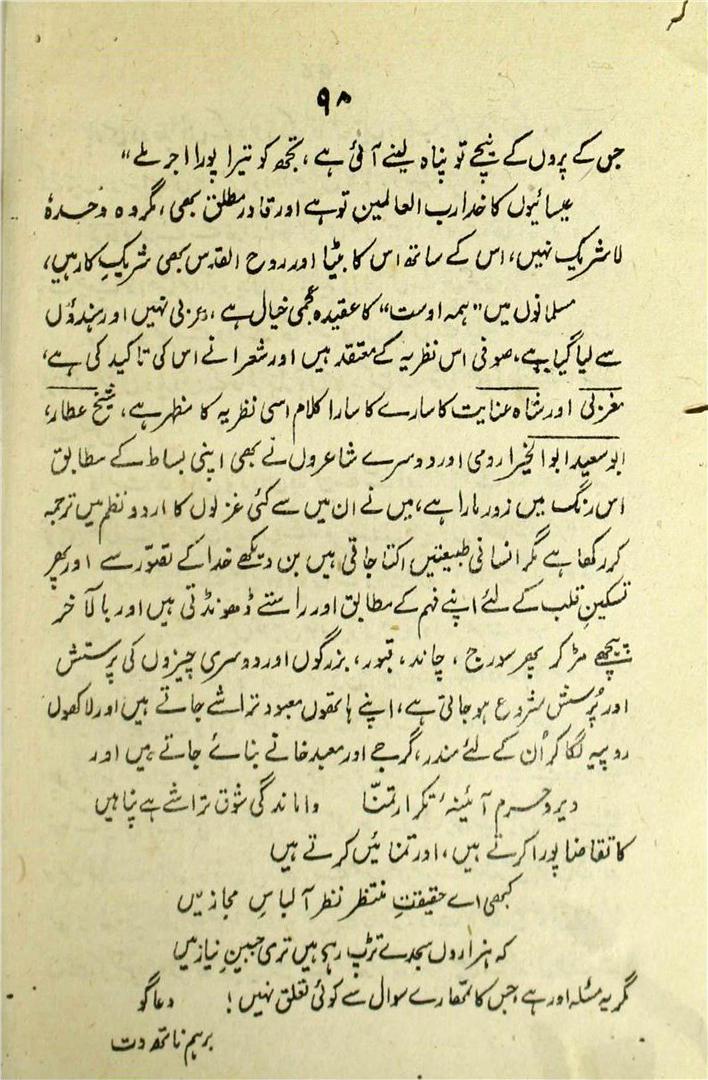 ۹۸
جس کے پروں کے نیچے تو پناہ لینے آئی ہے، تجھ کو تیرا پورا اجر ملے“
عیسائیوں کا خدا رب العالمین تو ہے اور قادر مطلق بھی، مگر وہ وحدہٗ
لاشریک نہیں، اس کے ساتھ اس کا بیٹا اور روح القدس بھی شریکِ کار ہیں،
مسلمانوں میں ”ہمہ اوست“ کا عقیدہ عجمی خیال ہے، عربی نہیں اور ہندوؤں
سے لیا گیا ہے، صوفی اس نظریہ کے معتقد ہیں اور شعرا نے اس کی تاکید کی ہے،
مغربی اور شاہ عنایت کا سارے کا سارا کلام اسی نظریہ کا مظہر ہے، شیخ عطار،
ابو سعید ابوالخیر، رومی اور دوسرے شاعروں نے بھی اپنی بساط کے مطابق
اس رنگ میں زور مارا ہے، میں نے ان میں سے کئی غزلوں کا اردو نظم میں ترجمہ
کر رکھا ہے مگر انسانی طبیعتیں اکتا جاتی ہیں بن دیکھے خدا کے تصوّر سے اور پھر
تسکینِ قلب کے لئے اپنے فہم کے مطابق اور راستے ڈھونڈتی ہیں اور بالآخر
پیچھے مڑ کر پھر سورج، چاند، قبور، بزرگوں اور دوسری چیزوں کی پرستش
اور پُرسش شروع ہو جاتی ہے، اپنے ہاتھوں معبود تراشے جاتے ہیں اور لاکھوں
روپیہ لگا کر اُن کے لئے مندر، گرجے اور معبد خانے بنائے جاتے ہیں اور
دیر و حرم آئینۂ تکرارِ تمنّا واماندگیِ شوق تراشے ہے پناہیں
کا تقاضا پورا کرتے ہیں، اور تمنائیں کرتے ہیں
کبھی اے حقیقتِ منتظر نظر آ لباسِ مجاز میں
کہ ہزاروں سجدے تڑپ رہے ہیں تری جبینِ نیاز میں
مگر یہ مسئلہ اور ہے، جس کا تمھارے سوال سے کوئی تعلق نہیں! دعا گو
برہم ناتھ دت